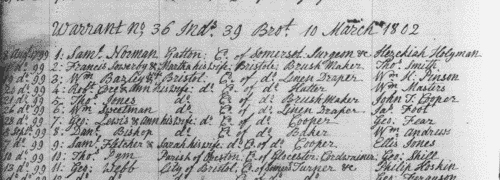 Warrant No 36 Indt. 39 Brot. 10 March 1802
99 1: Saml. Norman Yatton Co. of Somerset Surgeon & Hezekiah Holyman
do. 99 2: Francis & Martha his wife Bristol Brush Maker Thos. Smith
do. 99 3: Wm. Bazley do. Bristol Co. of do. Linen Draper Wm. K. Pinson
do. 99 4: Robt. & Ann his wife do. Co. of do. Hatter Wm. Masters
do. 99 5: Thos. Jones do. Co. of do. Brush Maker John T. Cooper
do. 99 6: Wm. Sweetman do. Co. of do. Linen Draper Jas. Foot
do. 99 7: Geo: Lewis & Ann his wife do. Co. of do. Cooper Geo: Fear
Sept. 99 8: Danl. Bishop do. Co. of do. Baker Wm. Andrews
do. 99 9: Saml. Fletcher & Sarah his wife do. Co. of do. Cooper Ellis Jones
do. 99 10: Thos. Pym Parish of Co. of Glocester Cordwainer Geo: Shill
do. 99 11: Geo: Webb City of Bristol Co. of Turner &c. Philip Hoskin
Geo: Ferguson